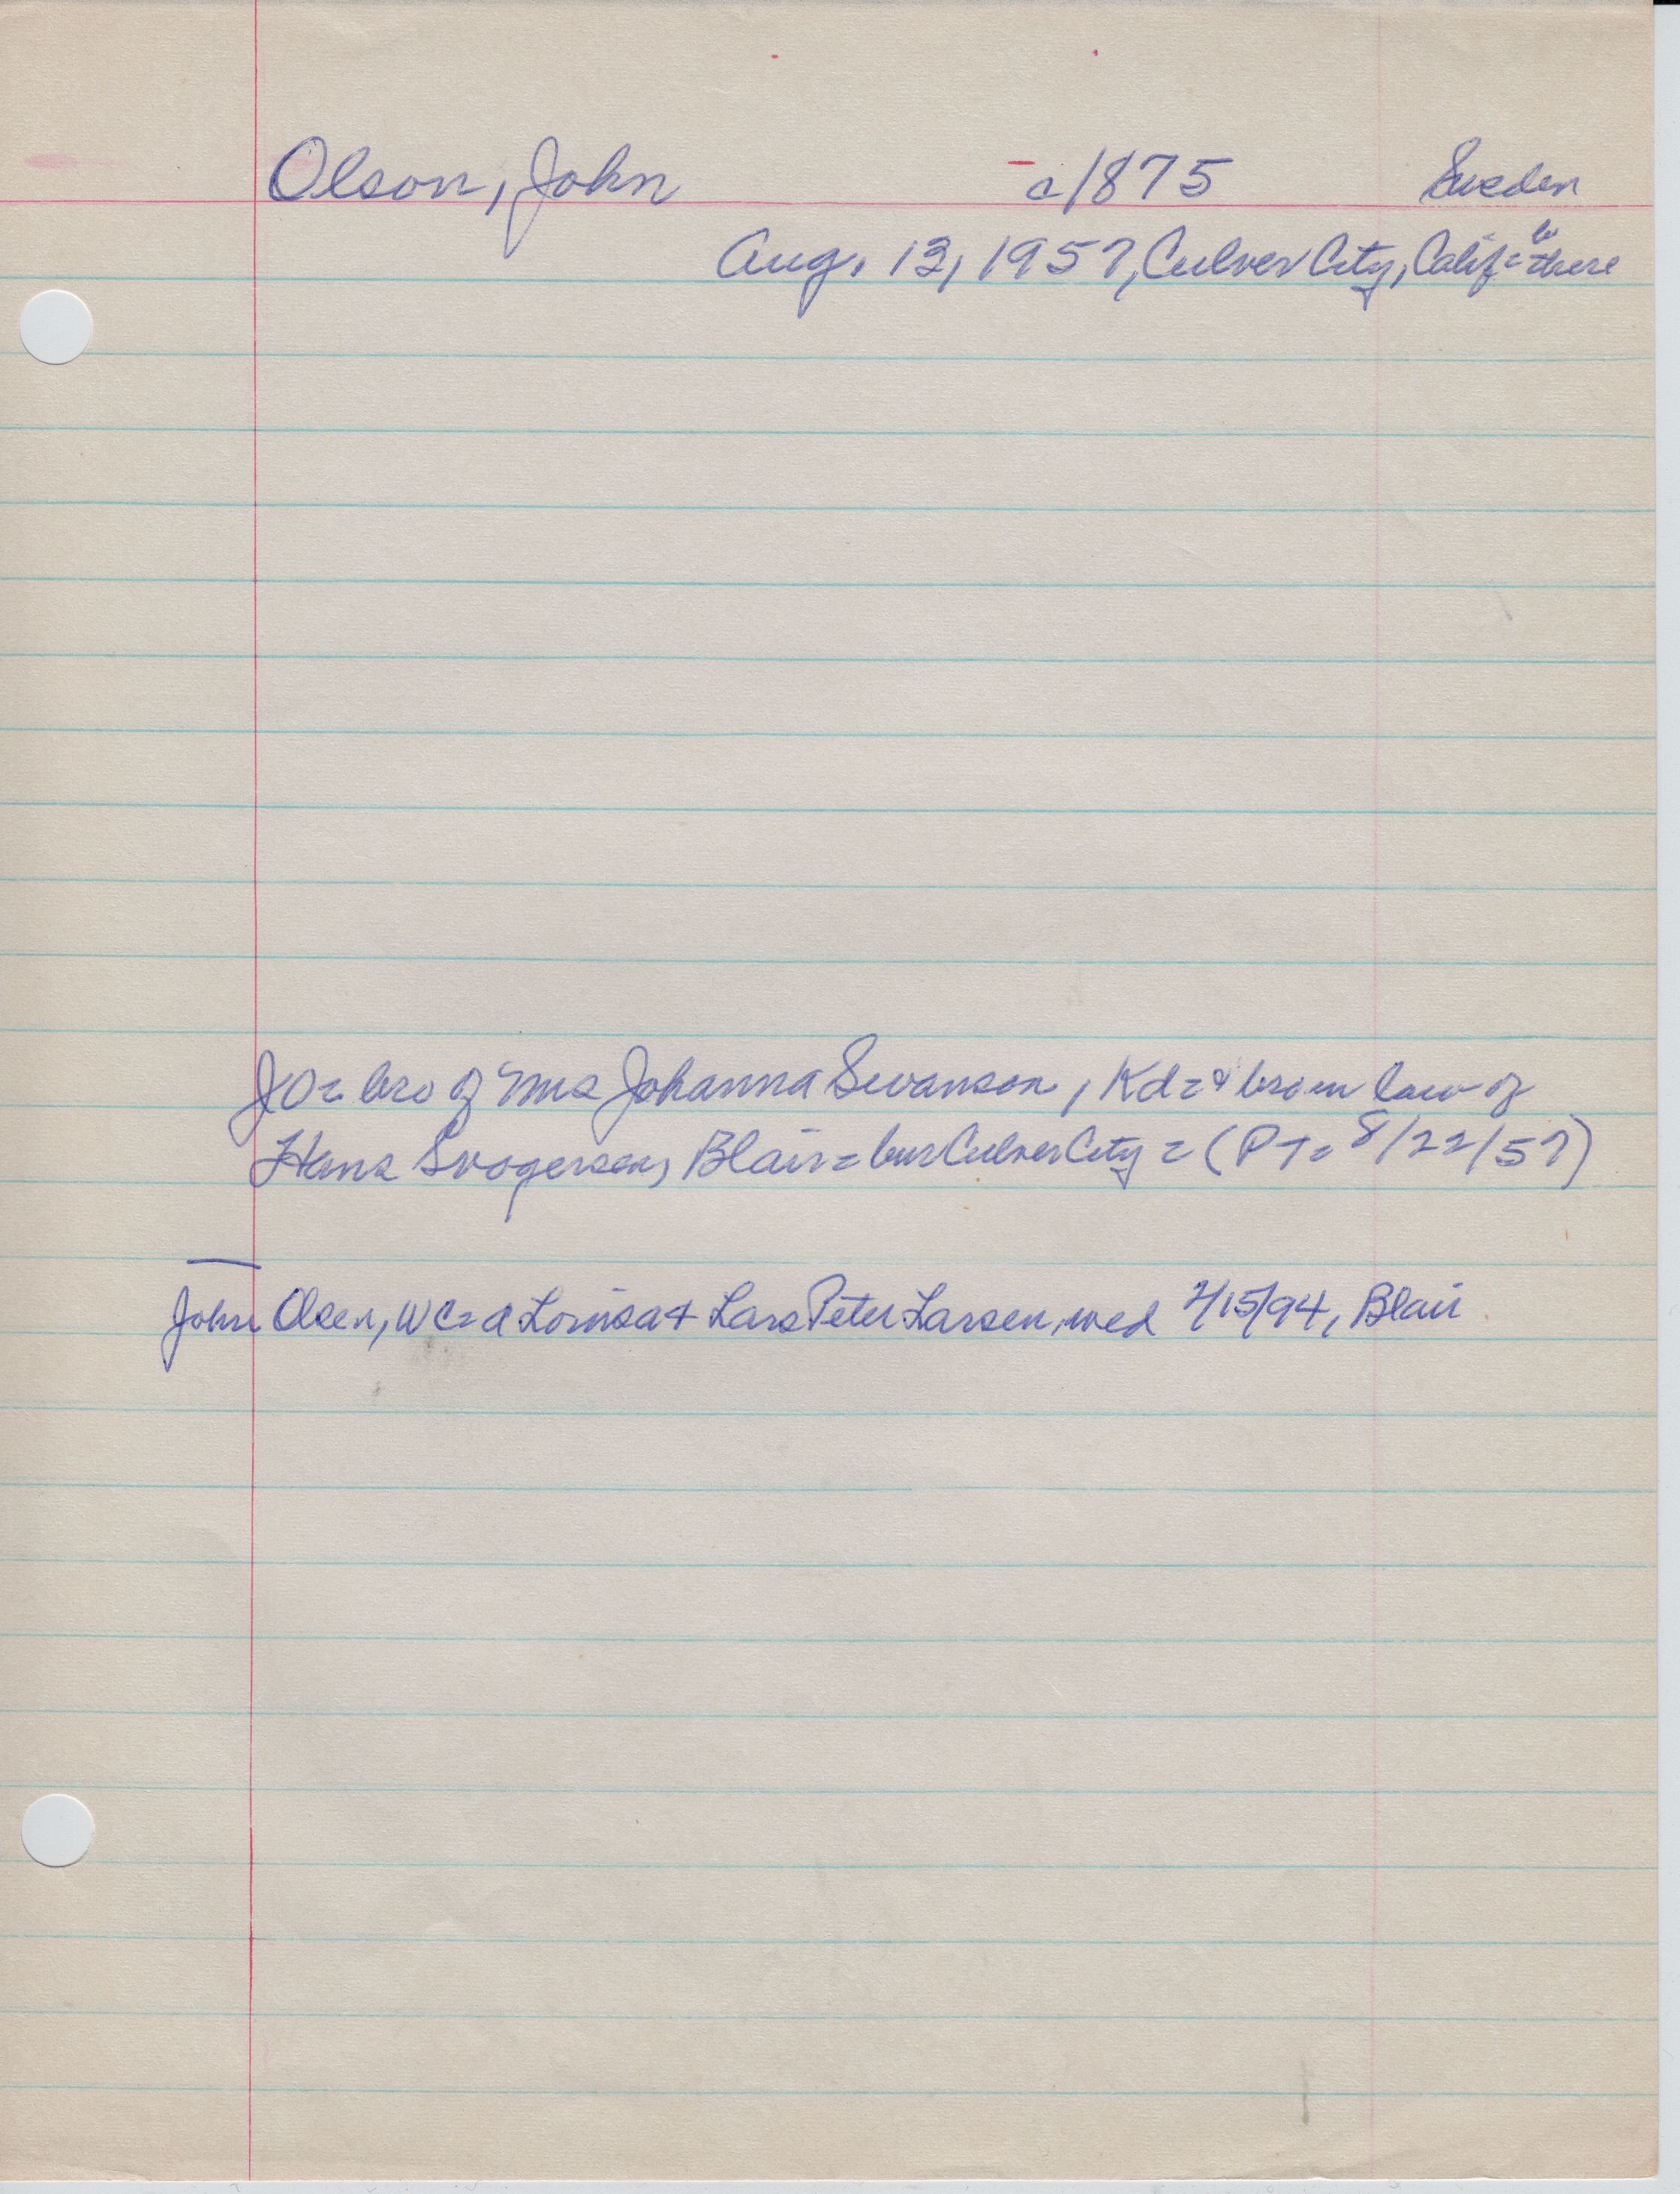 Olson, John c/1875 Sweden
Aug. 13, 1957, Culver City, Calif = b there
JO= bro of Mrs Johanna Swanson, Kd= & bro in law of
Hans Svogersen, Blair= bur Culver City = (PT= 8/22/57)
John Olsen, WC= a Lovisa + Lars Peter Larsen, wed 2/15/94, Blair